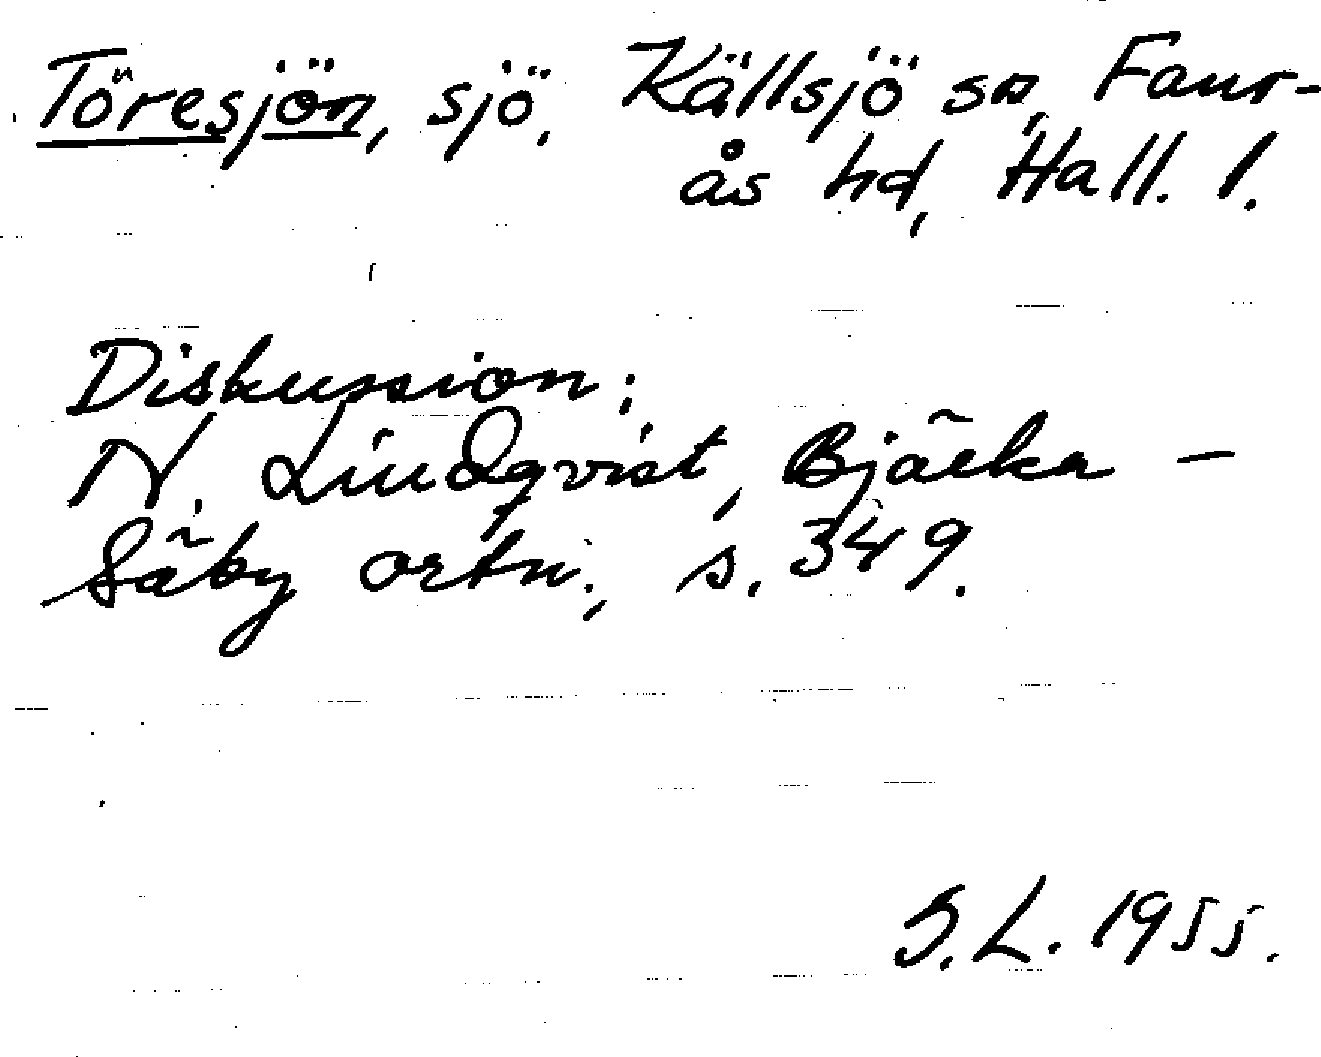 Töresjön, sjö, Källsjö sn, Faur-
ås hd, Hall. l.
Diskussion:
N. Lindqvist, Bjärka -
Säby ortn., s. 349.
S.L. 1955.